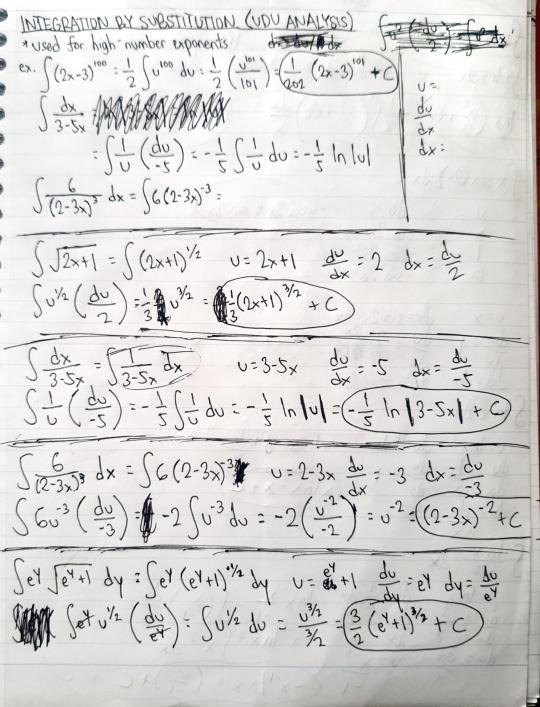 INTEGRATION BY SUBSTITUTION (UDU ANALYSIS)
* used for high-number exponents
ex. ∫(2x-3)¹⁰⁰ = 1/2 ∫u¹⁰⁰ du = 1/2 (u¹⁰¹/101) = 1/202 (2x-3)¹⁰¹ + C
u =
du/dx
dx =
∫ dx/(3-5x) =
= ∫ 1/u (du/-5) = -1/5 ∫ 1/u du = -1/5 ln|u|
∫ 6/(2-3x)³ dx = ∫6(2-3x)⁻³ =
∫√(2x+1) = ∫(2x+1)^(1/2) u = 2x+1 du/dx = 2 dx = du/2
∫u^(1/2) (du/2) = 1/3 u^(3/2) = 1/3 (2x+1)^(3/2) + C
∫ dx/(3-5x) = ∫ 1/(3-5x) dx u = 3-5x du/dx = -5 dx = du/-5
∫ 1/u (du/-5) = -1/5 ∫ 1/u du = -1/5 ln|u| = -1/5 ln|3-5x| + C
∫ 6/(2-3x)³ dx = ∫6(2-3x)⁻³ u = 2-3x du/dx = -3 dx = du/-3
∫6u⁻³ (du/-3) = -2 ∫u⁻³ du = -2 (u⁻²/-2) = u⁻² = (2-3x)⁻² + C
∫e^y √(e^y+1) dy = ∫e^y (e^y+1)^(1/2) dy u = e^y+1 du/dy = e^y dy = du/e^y
∫e^y u^(1/2) (du/e^y) = ∫u^(1/2) du = u^(3/2)/(3/2) = 3/2 (e^y+1)^(3/2) + C